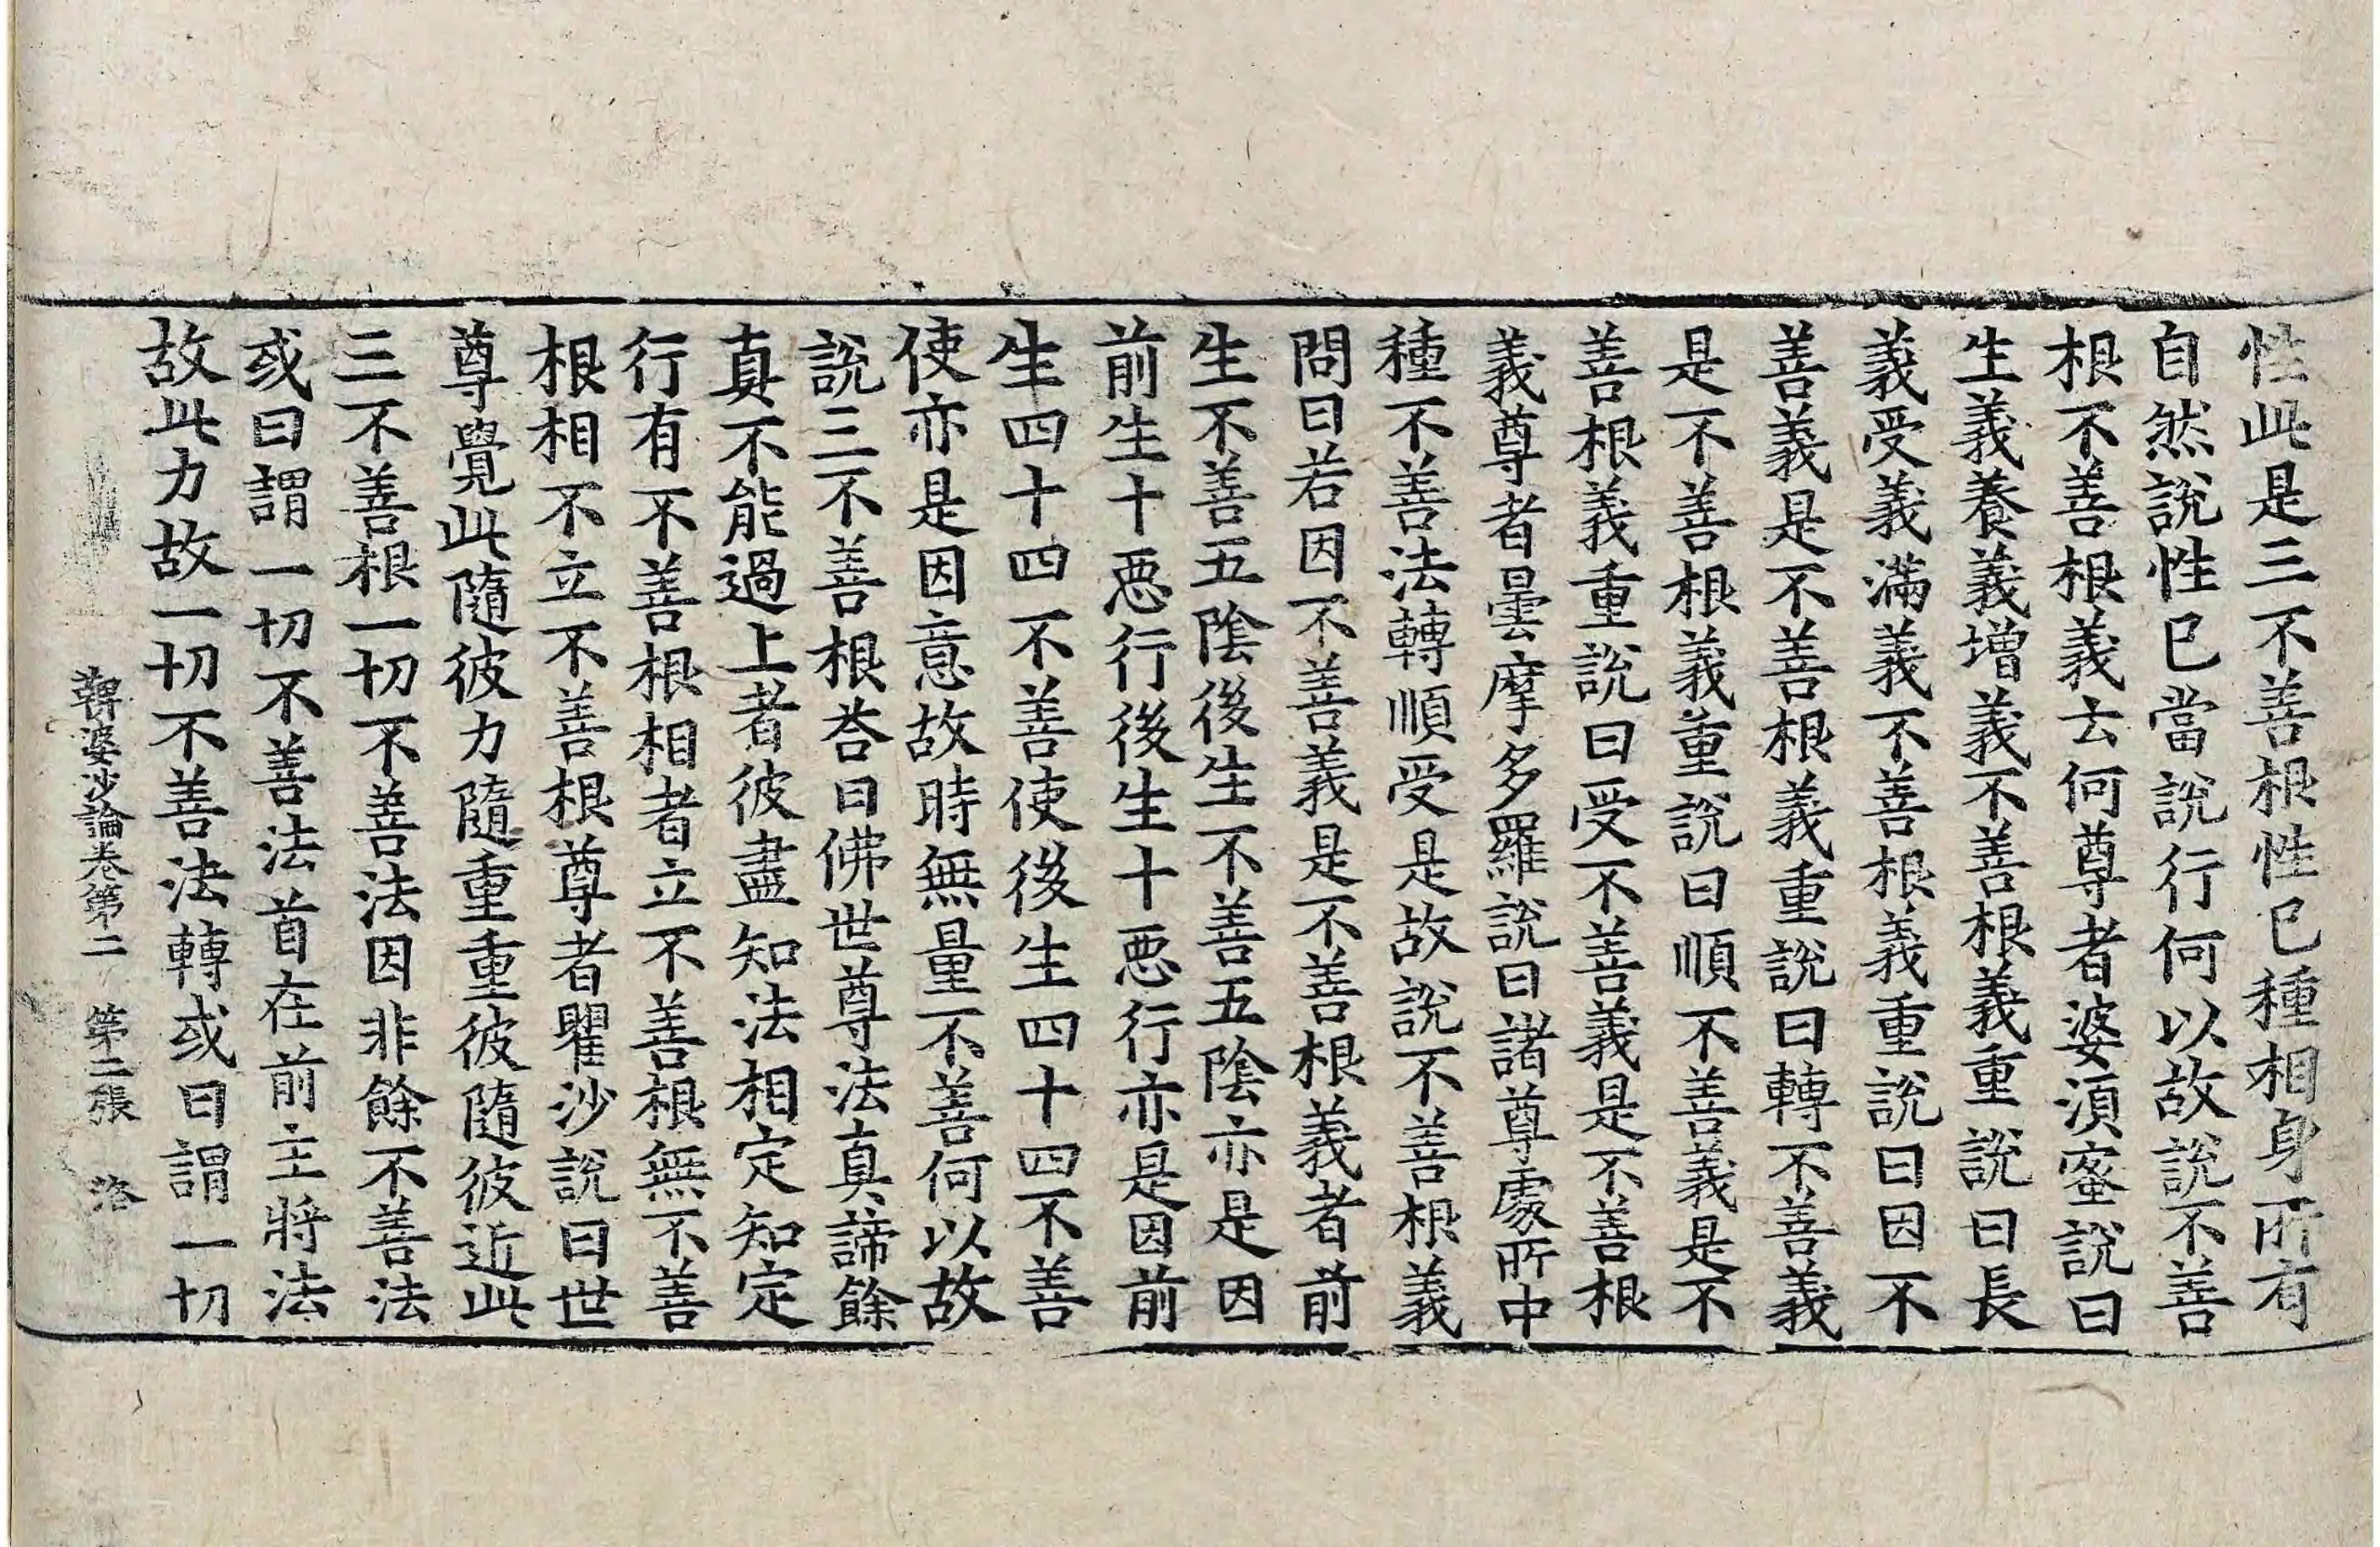 性此是三不善根性已種相身所有
自然說性已當說行何以故說不善
根不善根義云何尊者婆須蜜說曰
生義養義增義不善根義重說曰長
義受義滿義不善根義重說曰因不
善義是不善根義重說曰轉不善義
是不善根義重說曰順不善義是不
善根義重說曰受不善義是不善根
義尊者曇摩多羅說曰諸尊處所中
種不善法轉順受是故說不善根義
問曰若因不善義是不善根義者前
生不善五陰後生不善五陰亦是因
前生十惡行後生十惡行亦是因前
生四十四不善使後生四十四不善
使亦是因意故時無量不善何以故
說三不善根荅曰佛世尊法真諦餘
真不能過上者彼盡知法相定知定
行有不善根相者立不善根無不善
根相不立不善根尊者瞿沙說曰世
尊覺此隨彼力隨重重彼隨彼近此
三不善根一切不善法因非餘不善法
或曰謂一切不善法首在前主將法
故此力故一切不善法轉或曰謂一切
鞞婆沙論卷第二 第二張 洛